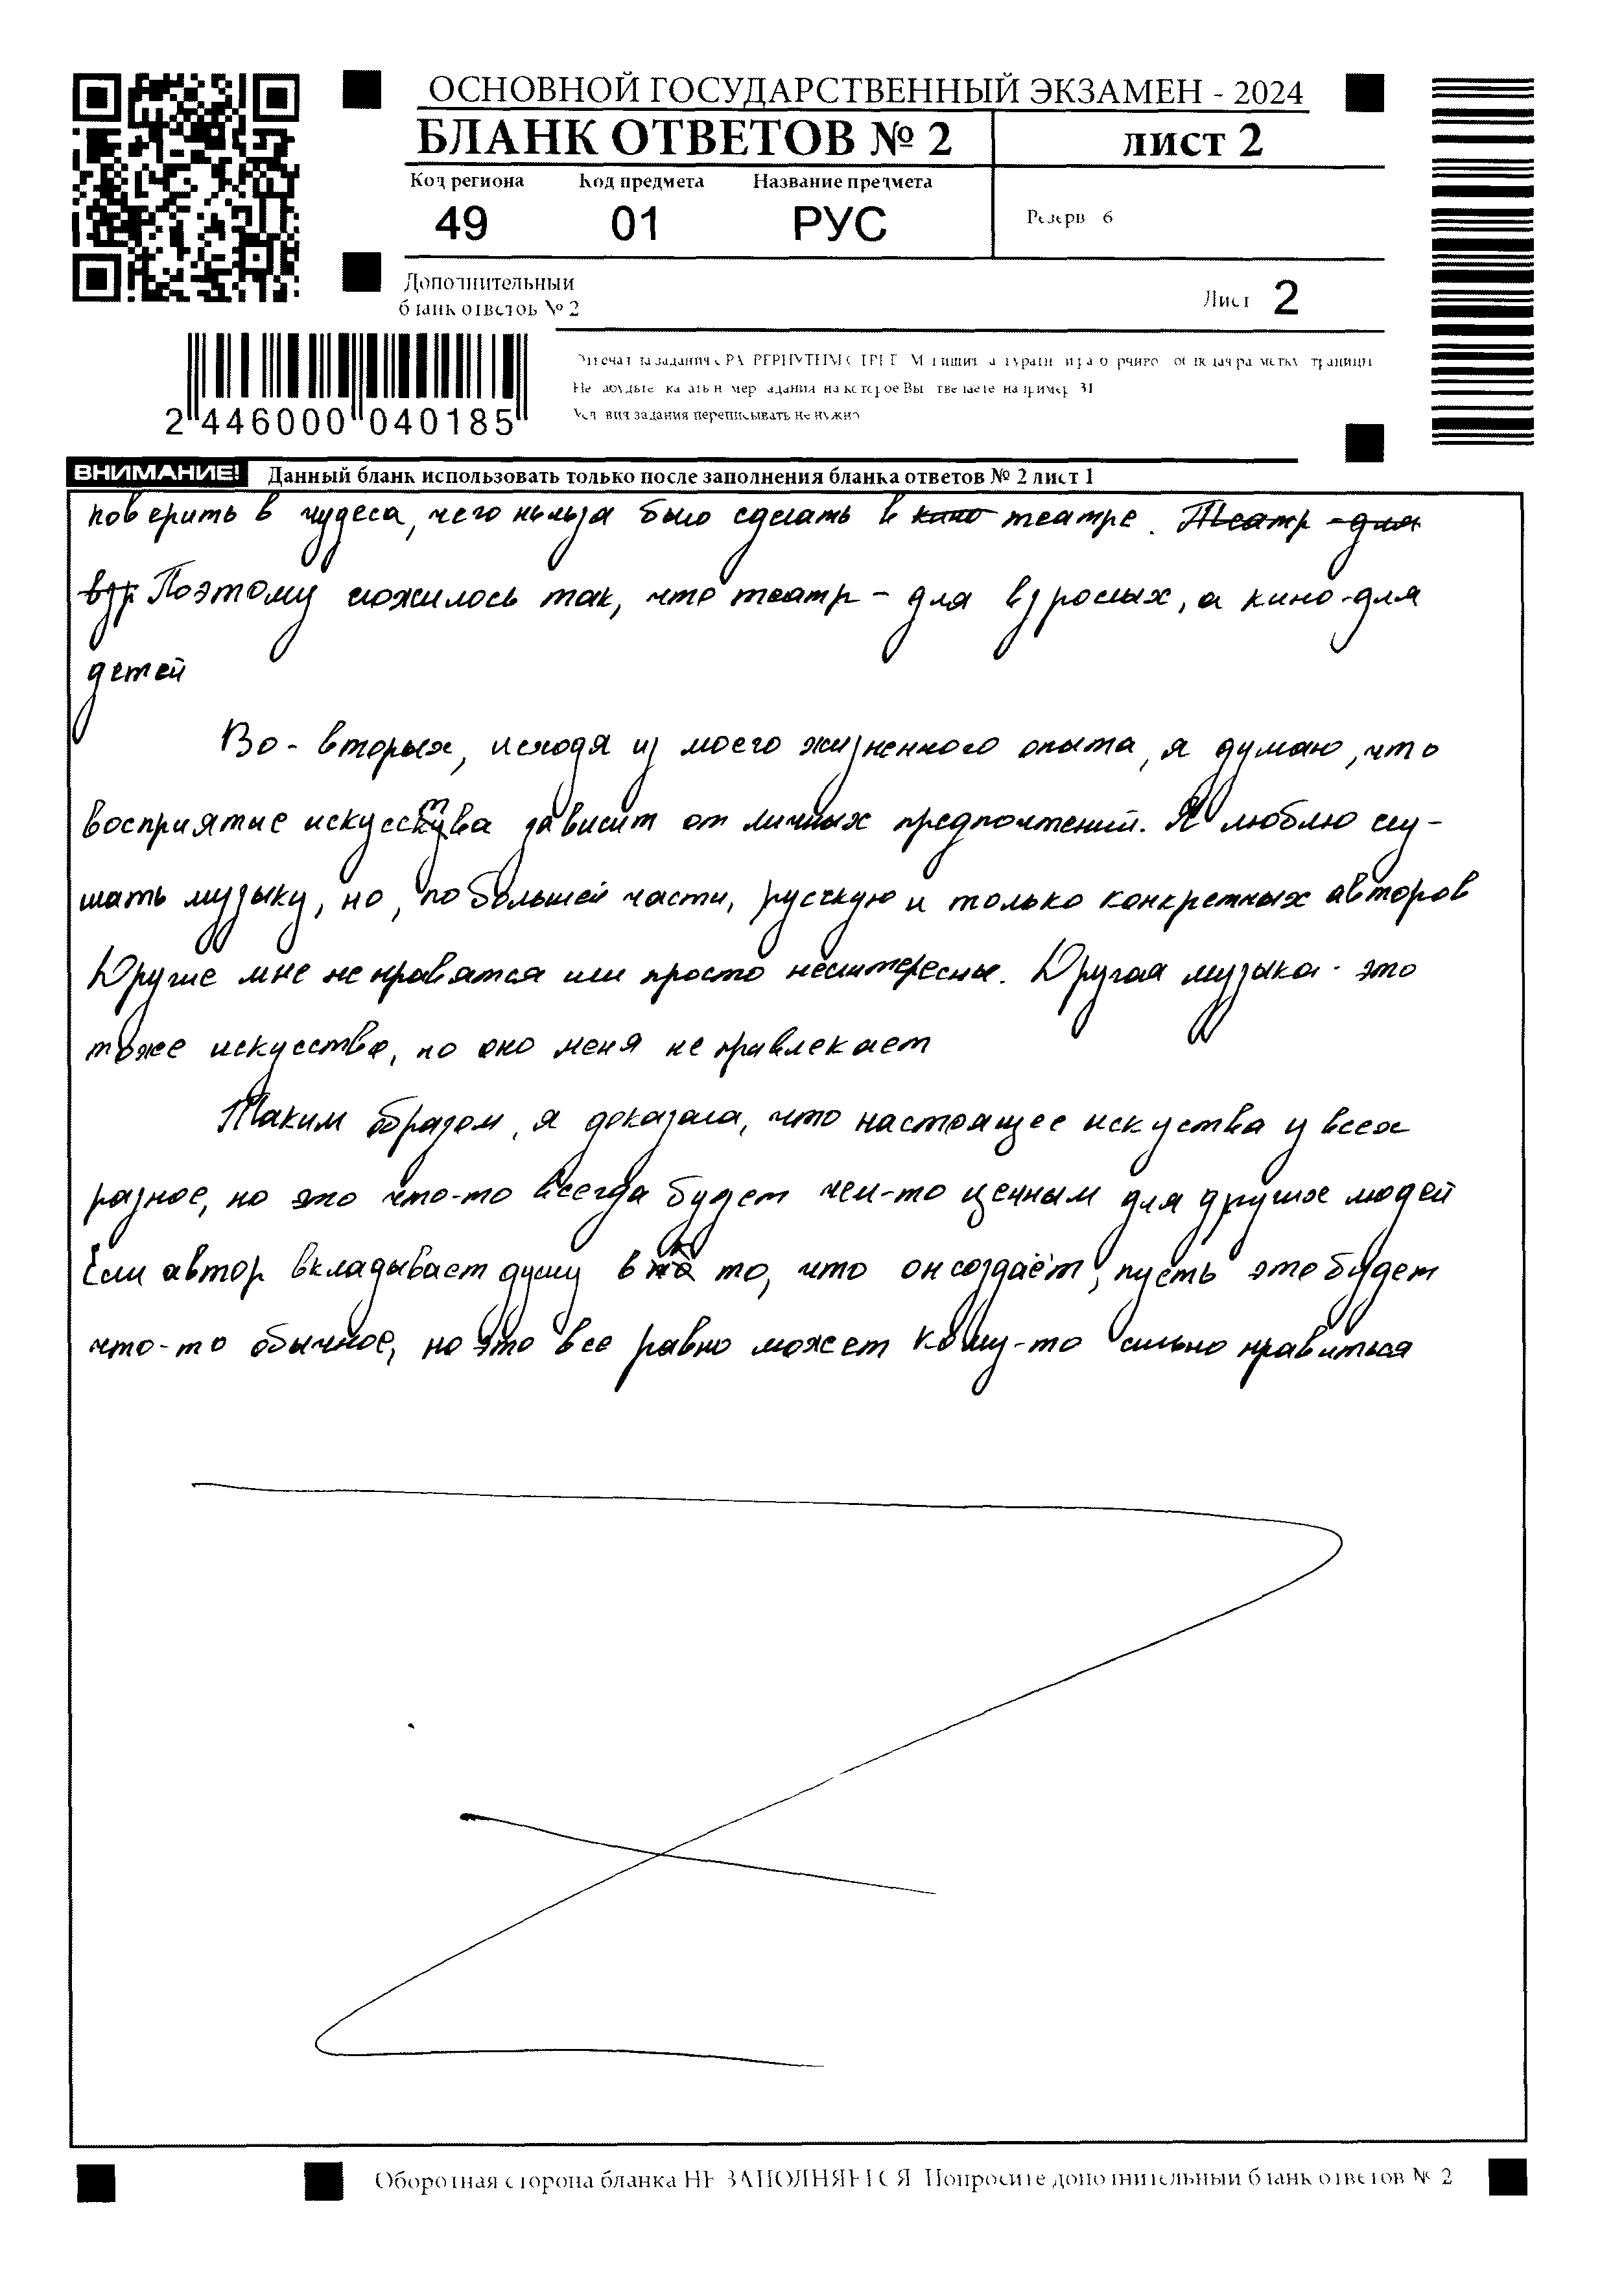 ОСНОВНОЙ ГОСУДАРСТВЕННЫЙ ЭКЗАМЕН - 2024
БЛАНК ОТВЕТОВ № 2
лист 2
Код региона Код предмета Название предмета
49 01 РУС
Резерв 6
Дополнительный
бланк ответов № 2
Лист 2
2 446000 040185
Условия задания переписывать не нужно
ВНИМАНИЕ! Данный бланк использовать только после заполнения бланка ответов № 2 лист 1
поверить в чудеса, чего нельзя было сделать в кино театре. Театр - для
взр Поэтому сложилось так, что театр - для взрослых, а кино - для
детей
Во-вторых, исходя из моего жизненного опыта, я думаю, что
восприятие искусства зависит от личных предпочтений. Я люблю слу-
шать музыку, но, по большей части, русскую и только конкретных авторов
Другие мне не нравятся или просто неинтересны. Другая музыка - это
тоже искусство, но оно меня не привлекает
Таким образом, я доказала, что настоящее искуства у всех
разное, но это что-то всегда будет чем-то ценным для других людей
Если автор вкладывает душу в то, что он создаёт, пусть это будет
что-то обычное, но это все равно может кому-то сильно нравиться
Оборотная сторона бланка НЕ ЗАПОЛНЯЕТСЯ Попросите дополнительный бланк ответов № 2